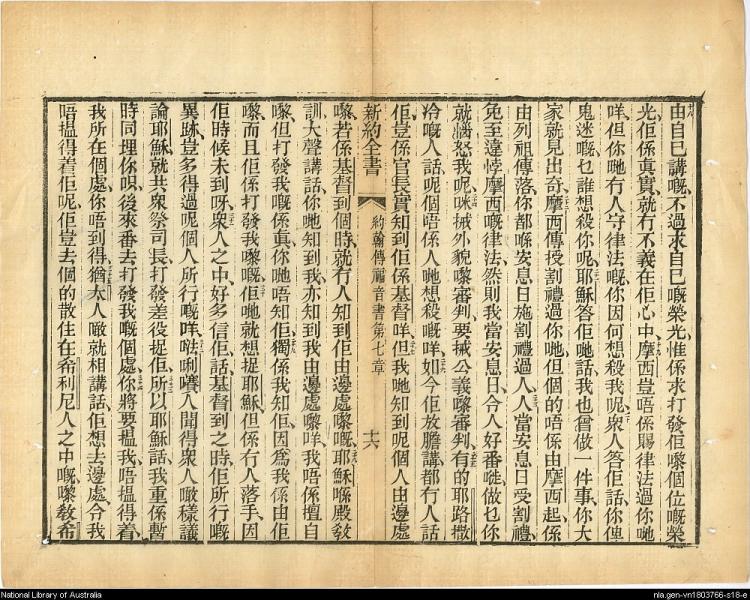 由自己講嘅、不過求自己嘅榮光、惟係求打發佢嚟個位嘅榮
光、佢係眞實、就冇不義在佢心中、摩西豈唔係賜律法過你哋
咩、但你哋冇人守律法嘅、你因何想殺我呢、衆人答佢話、你俾
鬼迷嘅乜、誰想殺你呢、耶穌答佢哋話、我也曾做一件事、你大
家就見出奇、摩西傳授割禮過你哋、但個的唔係由摩西起、係
由列祖傳落、你都喺安息日施割禮過人、人當安息日受割禮、
免至違悖摩西嘅律法、然則我當安息日、令人好番嘥、做乜你
就嬲怒我呢、咪搣外貌嚟審判、要搣公義嚟審判、有的耶路撒
冷嘅人話、呢個唔係人哋想殺嘅咩、如今佢放膽講、都冇人話
佢、豈係官長實知到佢係基督咩、但我哋知到呢個人由邊處
新約全書
約翰傳福音書第七章
十六
嚟、若係基督到個時、就冇人知到佢由邊處嚟嘅、耶穌喺殿敎
訓、大聲講話、你哋知到我、亦知到我由邊處嚟咩、我唔係擅自
嚟、但打發我嘅係眞、你哋唔知佢、獨係我知佢、因爲我係由佢
嚟、而且佢係打發我嚟嘅、佢哋就想捉耶穌、但係冇人落手、因
佢時候未到呀、衆人之中、好多信佢話、基督到之時、佢所行嘅
異跡、豈多得過呢個人所行嘅咩、𠵽唎㘔人聞得衆人噉樣議
論耶穌、就共衆祭司長、打發差役捉佢、所以耶穌話、我重係暫
時同埋你唄、後來番去打發我嘅個處、你將要搵我、唔搵得着、
我所在個處、你唔到得、猶太人噉就相講話、佢想去邊處、令我
唔搵得着佢呢、佢豈去個的散住在希利尼人之中嘅嚟、敎希
National Library of Australia
nla.gen-vn1803766-s18-e